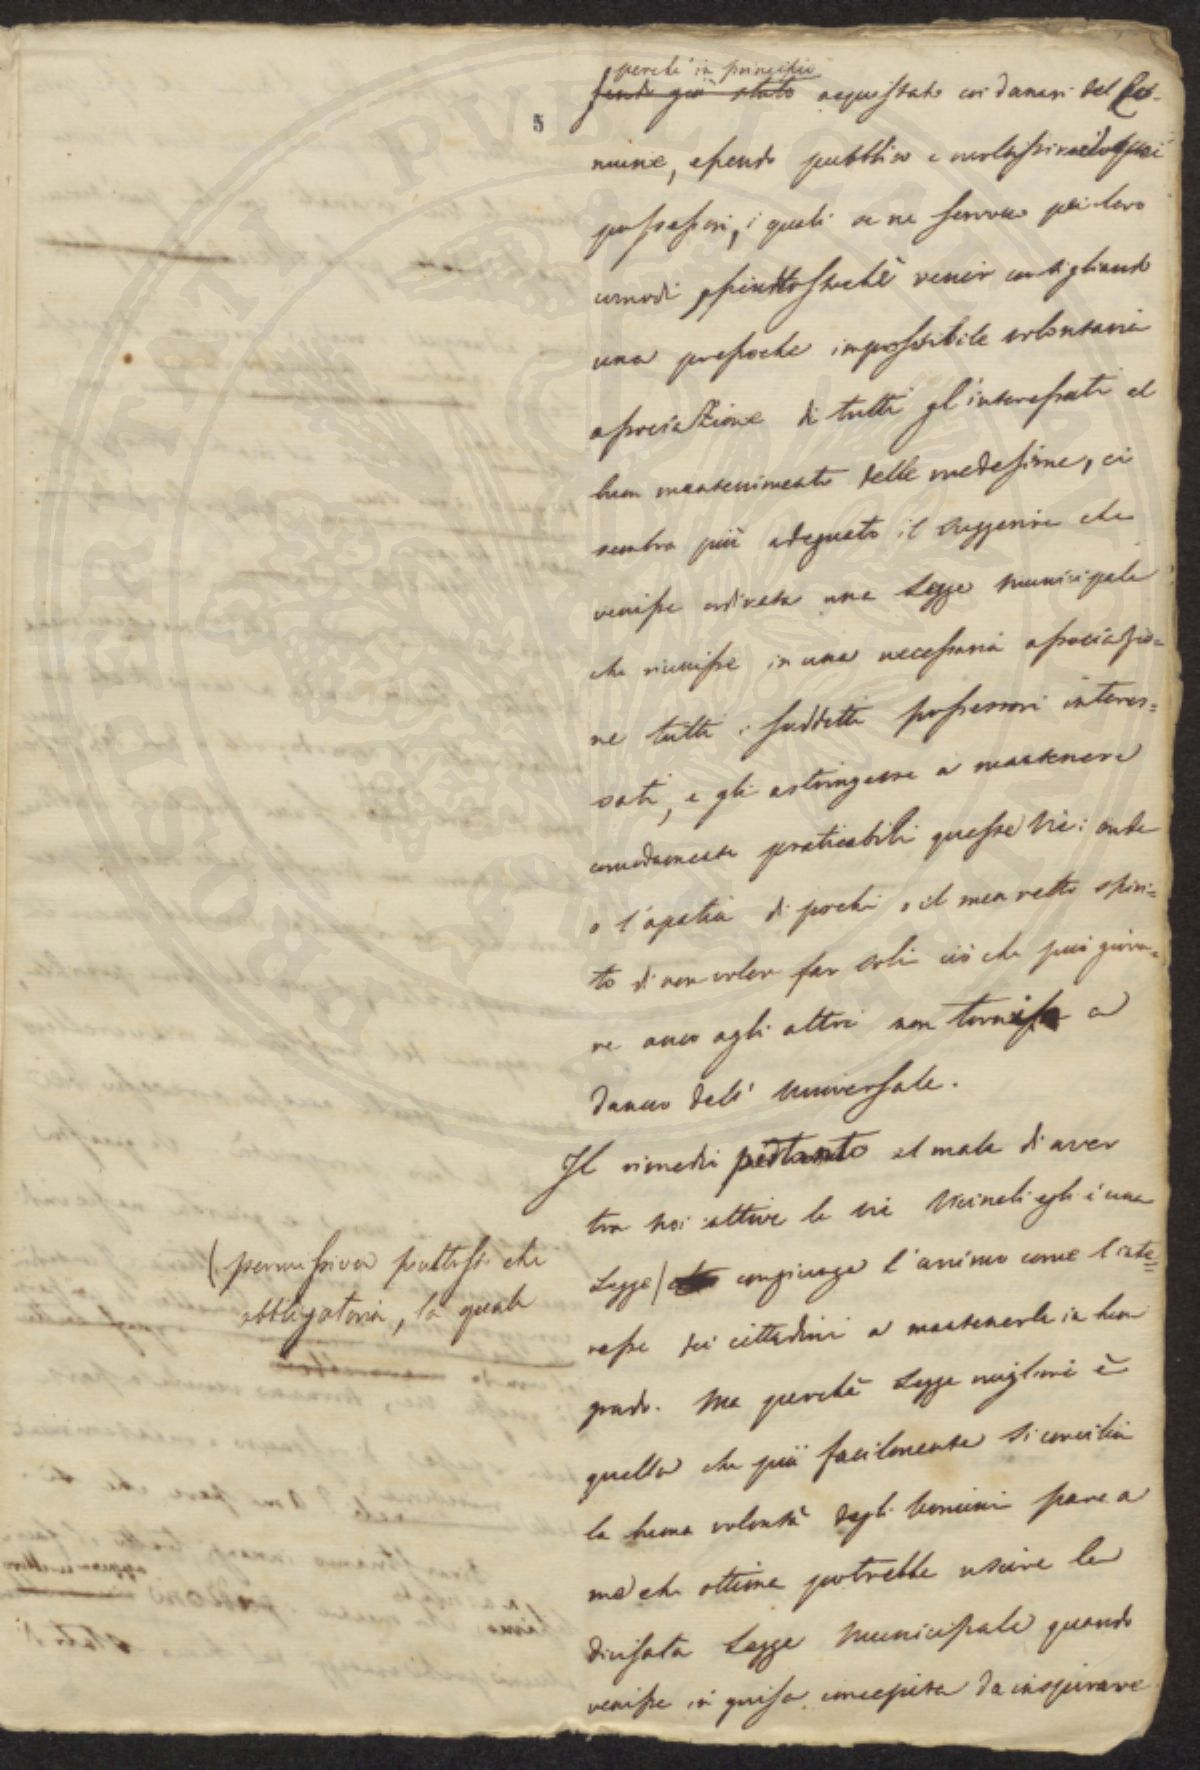 5
perchè in principio
essendo già stato acquistato coi danari del Co-
mune, essendo pubblico e moltissimi
possessori, i quali se ne servono pei loro
comodi, piuttostochè venir consigliando
una pressoche impossibile volontaria
associazione di tutti gl'interessati al
buon mantenimento delle medesime, ci
sembra più adeguato il suggerire che
venisse ordinata una Legge Municipale
che riunisse in una necessaria associazio=
ne tutti i suddetti possessori interes=
sati, e gli astringesse a mantenere
comodamente praticabili queste Vie: onde
o l'apatia di pochi o il men retto spiri=
to di non voler far soli ciò che può giova=
re anco agli altri non tornasse a
danno dell' Universale.
Il rimedio pertanto al male di aver
tra noi cattive le vie Vicinali egli è una
Legge / congiunga l'animo come l'inte=
resse dei cittadini a mantenerle in buon
grado. Ma perchè Legge migliore è
quella che più facilmente si concilia
la buona volontà degli Uomini pare a
me che ottima potrebbe uscire la
divisata Legge Municipale quando
venisse in guisa concepita da inspirare
( permissiva piuttosto che
obbligatoria, la quale